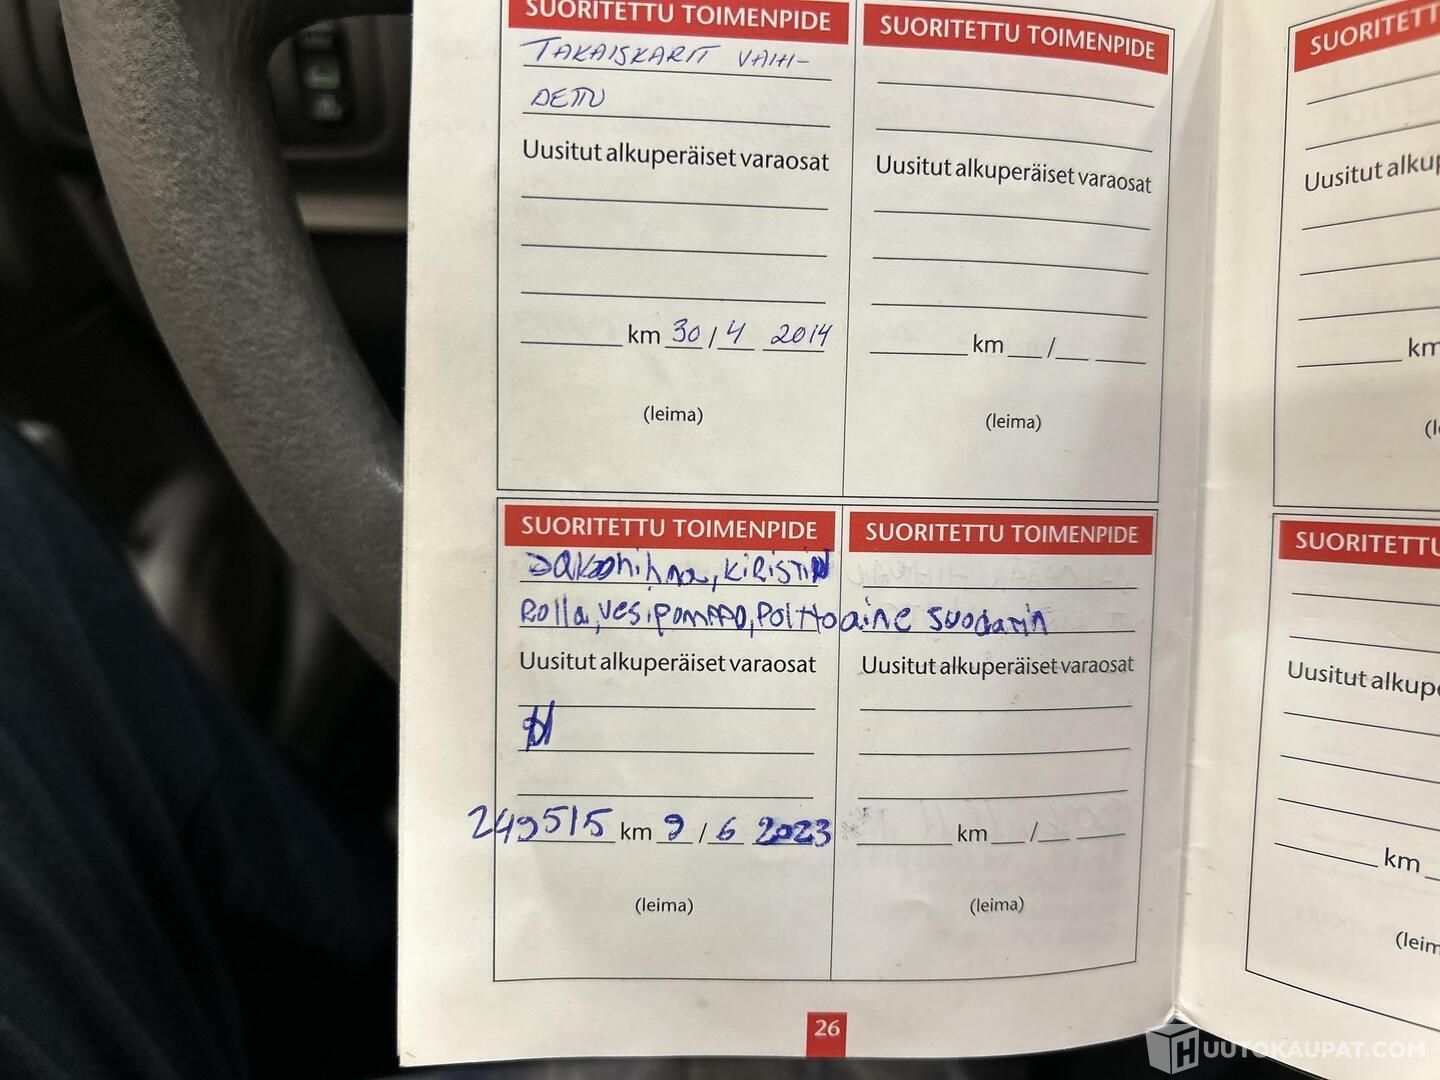 SUORITETTU TOIMENPIDE
TAKAISKARIT VAIH-
DETTU
Uusitut alkuperäiset varaosat
km 30/4 2014
(leima)
SUORITETTU TOIMENPIDE
Uusitut alkuperäiset varaosat
km __/__
(leima)
SUORITETTU TOIMENPIDE
Jakohihna, KIRISTIN
Rolla, vesipomppo, Polttoaine suodatin
Uusitut alkuperäiset varaosat
249515 km 9/6 2023
(leima)
SUORITETTU TOIMENPIDE
Uusitut alkuperäiset varaosat
km __/__
(leima)
26
SUORITETT
Uusitut alkup
km
(l
SUORITETTU
Uusitut alkupe
km
(leim
HUUTOKAUPAT.COM